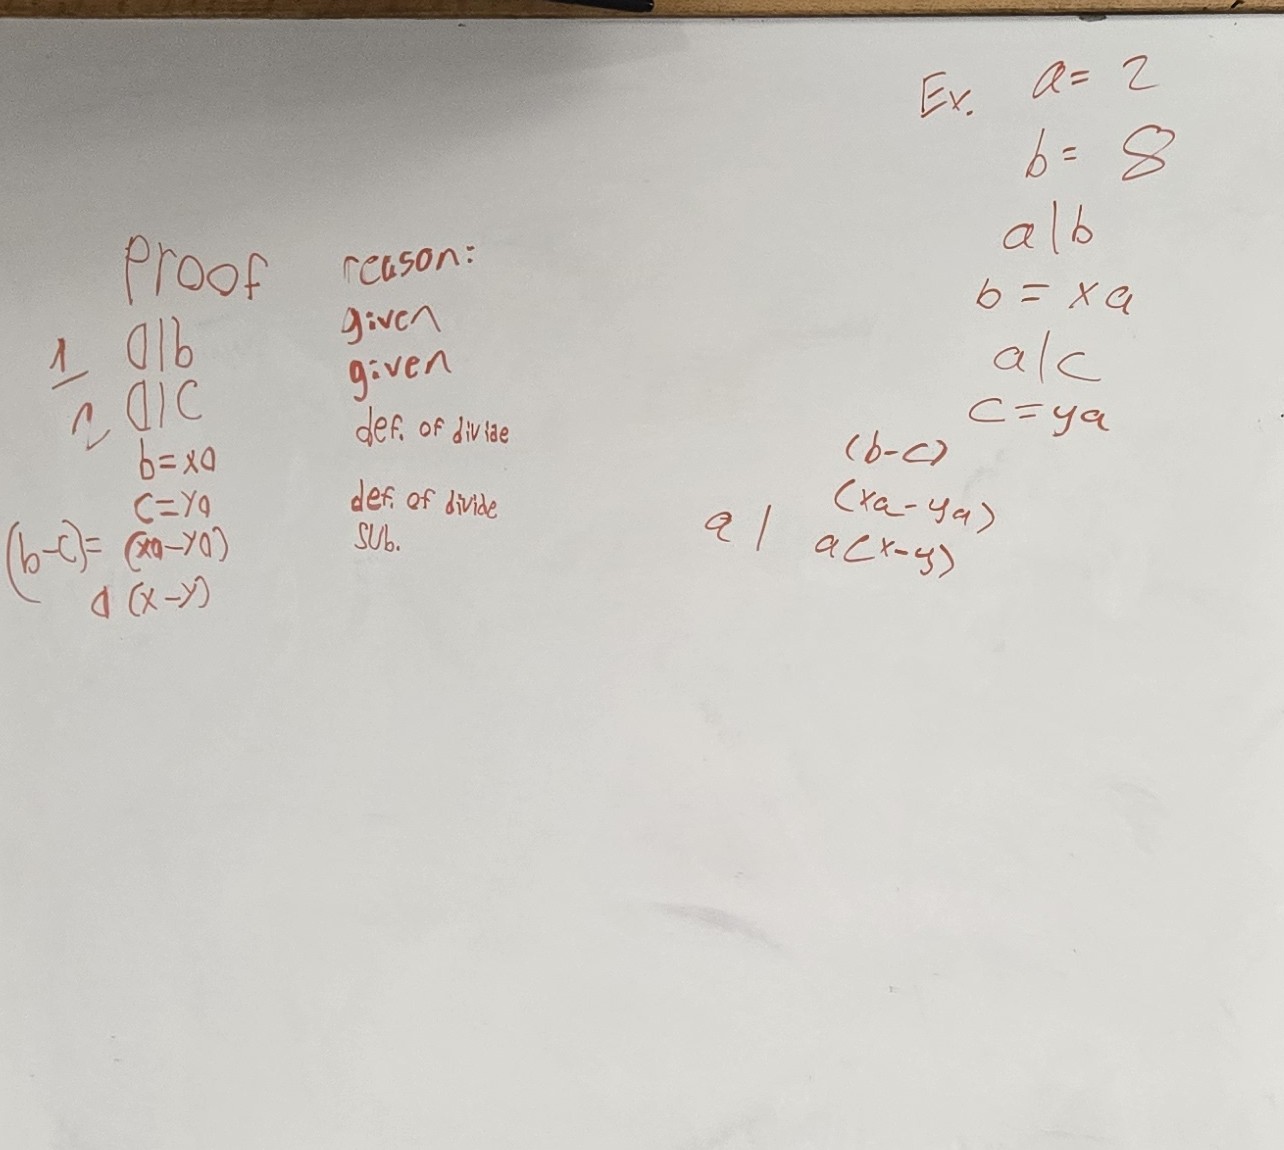 Ex. a = 2
b = 8
a|b
b = xa
a|c
c = ya
(b-c)
(xa-ya)
a | a(x-y)
Proof reason:
1 a|b given
2 a|c given
b=xa def. of divide
c=ya def. of divide
(b-c)= (xa-ya) sub.
a (x-y)